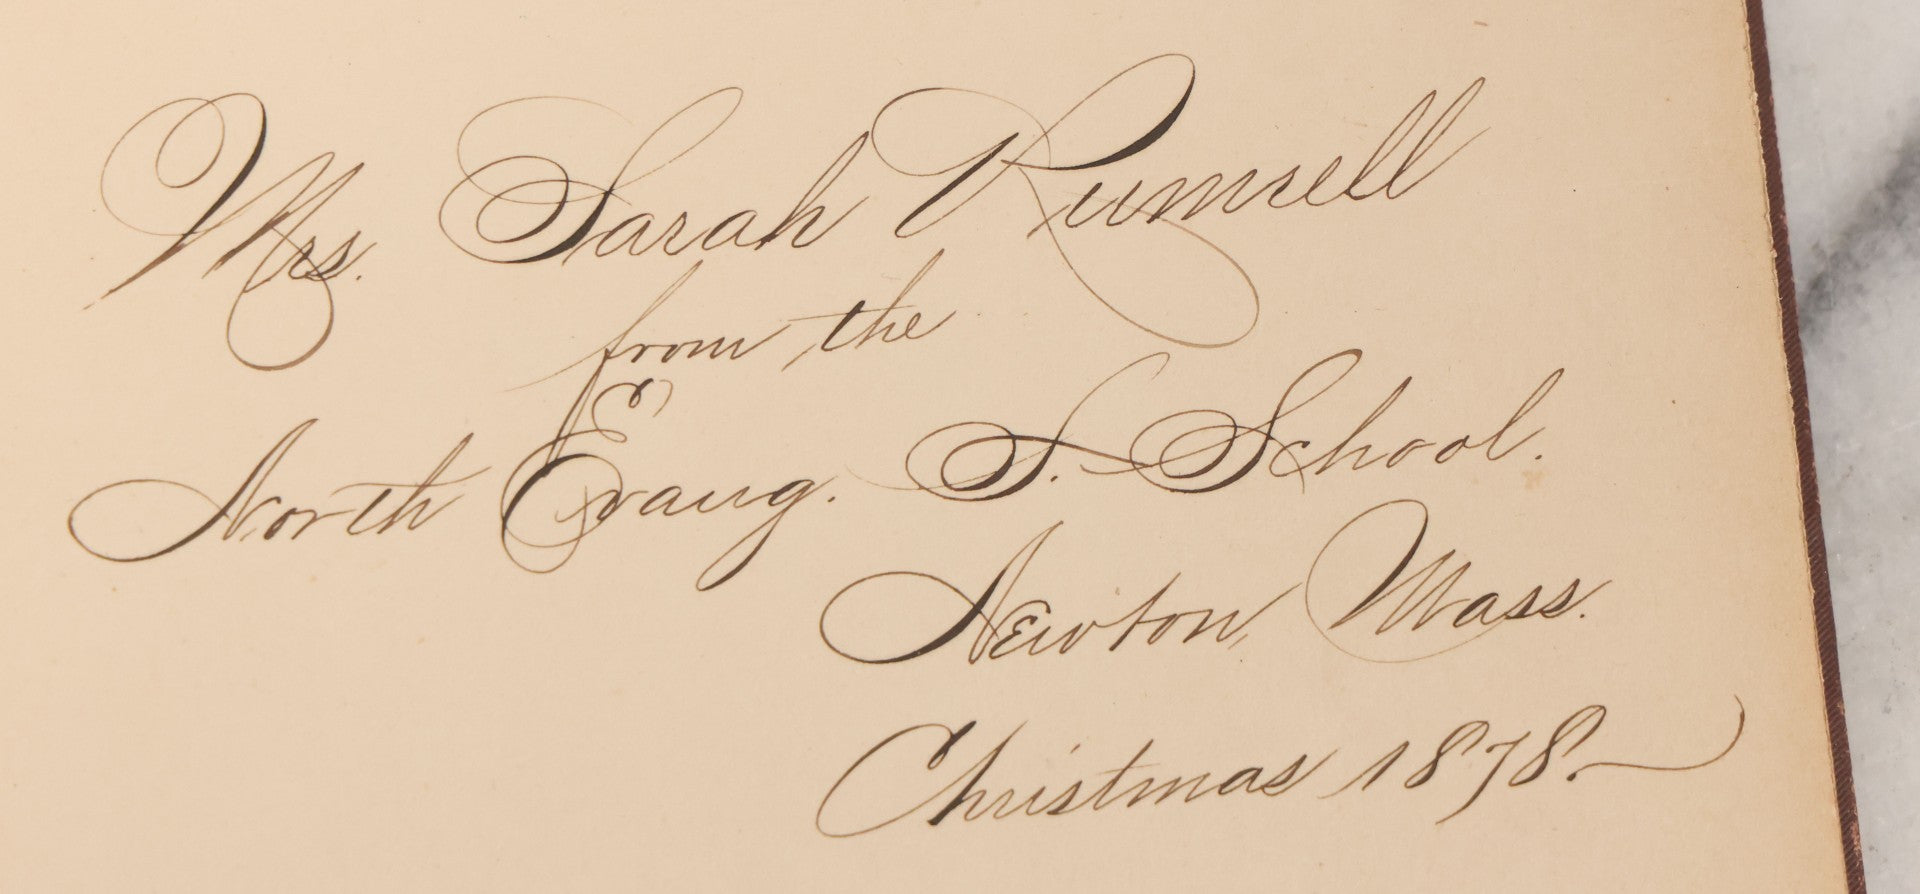 Mrs. Sarah Rumsell
from the
North Evang. S. School.
Newton, Mass.
Christmas 1878.